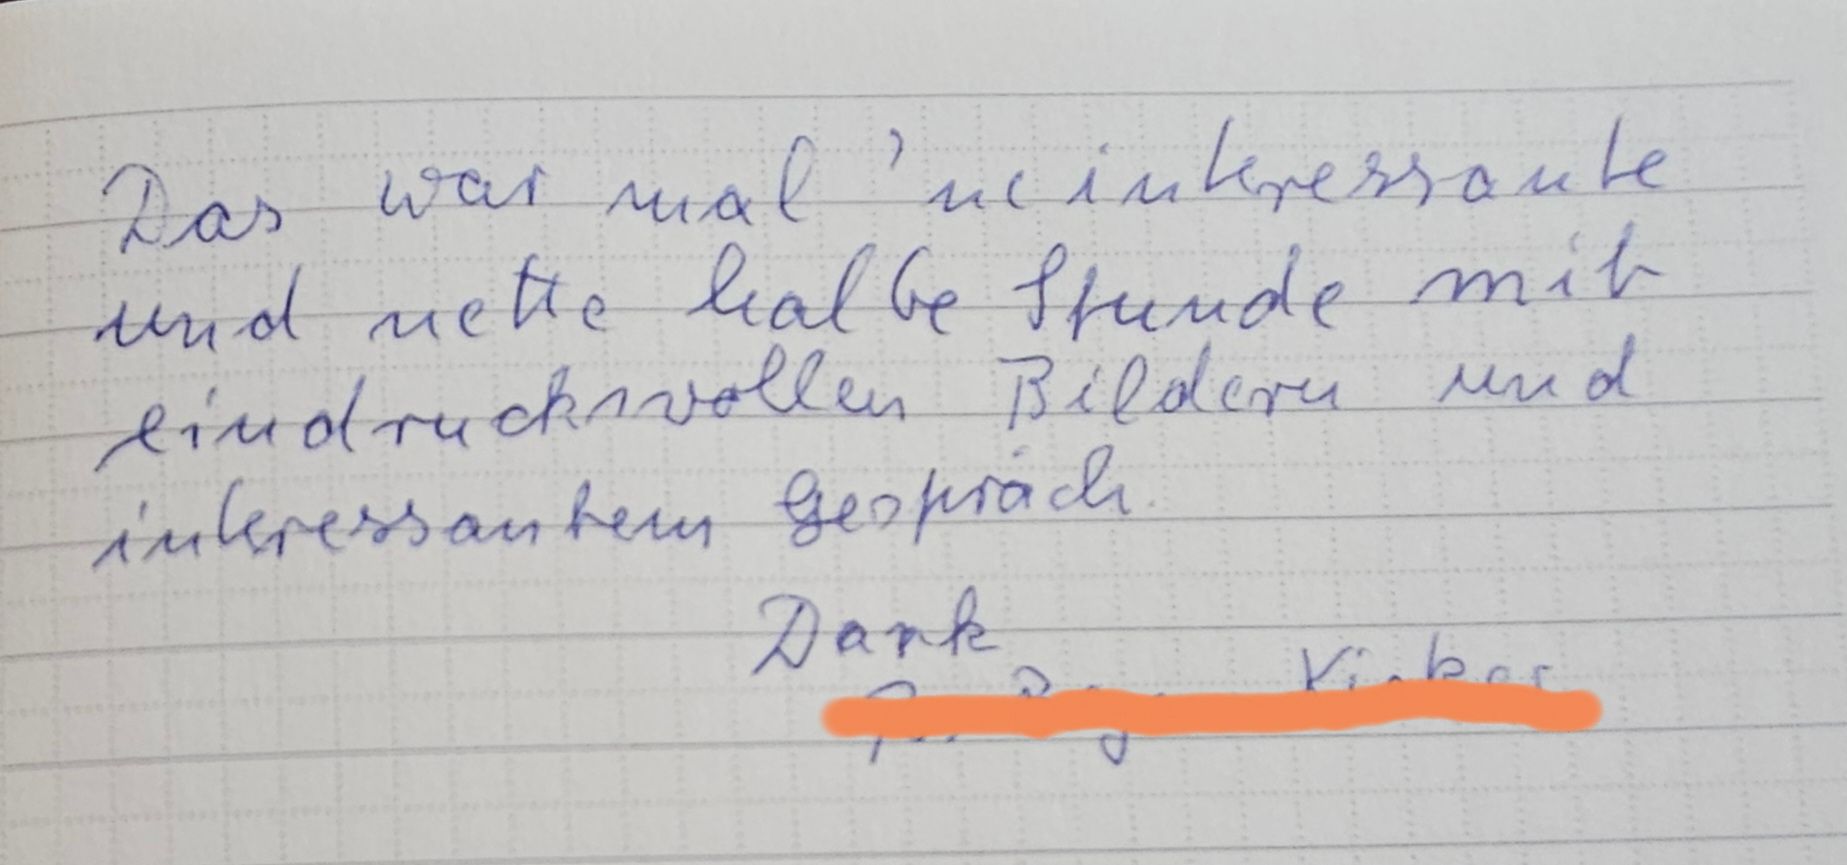 Das war mal 'ne interessante
und nette halbe Stunde mit
eindrucksvollen Bildern und
interessantem Gespräch.
Dank